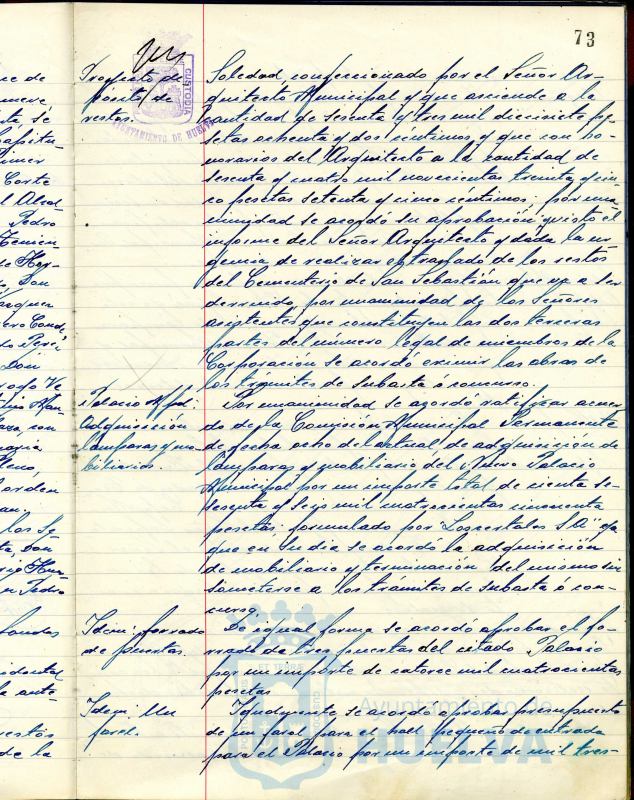 73
Proyecto de
pósito de
restos.
CUSTODIA
AYUNTAMIENTO DE HUELVA
Soledad, confeccionado por el Señor Ar-
quitecto Municipal y que asciende a la
cantidad de sesenta y tres mil diecisiete pe-
setas ochenta y dos céntimos y que con ho-
norarios del Arquitecto a la cantidad de
sesenta y cuatro mil novecientas treinta y cin-
co pesetas setenta y cinco céntimos, por una-
nimidad se acordó su aprobación y visto el
informe del Señor Arquitecto y dada la ur-
gencia de realizar el traslado de los restos
del Cementerio de San Sebastián que va a ser
derruido, por unanimidad de los Señores
asistentes que constituyen las dos terceras
partes del número legal de miembros de la
Corporación se acordó eximir las obras de
los trámites de subasta ó concurso.
Palacio Mpal:
Adquisición
lamparas y mo-
biliarios.
Por unanimidad se acordó ratificar acuer-
do de la Comisión Municipal Permanente
de fecha ocho del actual de adquisición de
lamparas y mobiliario del Nuevo Palacio
Municipal por un importe total de ciento se-
sesenta y seis mil cuatrocientas cincuenta
pesetas formulado por S.A" ya
que en su dia se acordó la adquisición
de mobiliario y terminación del mismo sin
someterse a los trámites de subasta ó con-
curso.
Idem: forrado
de puertas.
De igual forma se acordó aprobar el fo-
rrado de tres puertas del citado Palacio
por un importe de catorce mil cuatrocientas
pesetas
Idem: Un
farol.
Igualmente se acordó aprobar presupuesto
de un farol para el hall pequeño de entrada
para el Palacio por un importe de mil tres-
Ayuntamiento de
HUELVA